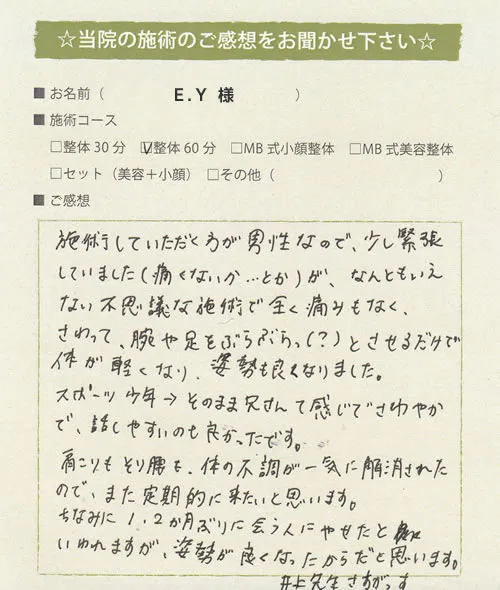 ☆当院の施術のご感想をお聞かせ下さい☆
■お名前（ E.Y 様 ）
■施術コース
□整体30分 ☑整体60分 □MB式小顔整体 □MB式美容整体
□セット（美容＋小顔） □その他（ ）
■ご感想
施術していただく方が男性なので、少し緊張
していました(痛くないか…とか)が、なんともいえ
ない不思議な施術で全く痛みもなく、
さわって、腕や足をぶらぶらっ(?)とさせるだけで
体が軽くなり、姿勢も良くなりました。
スポーツ少年→そのまま兄さんて感じでさわやか
で、話しやすいのも良かったです。
肩こりもそり腰も、体の不調が一気に解消された
ので、また定期的に来たいと思います。
ちなみに1、2か月ぶりに会う人にやせたと
いわれますが、姿勢が良くなったからだと思います。
井上先生さすがっす